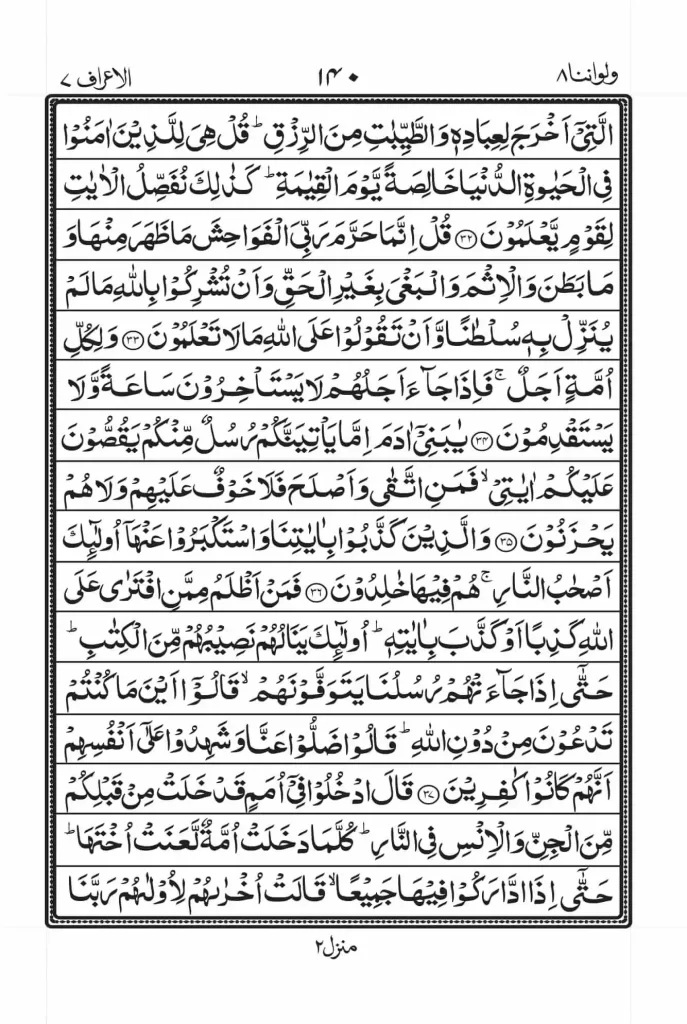 ولواننا ۸ ۱۴۰ الاعراف ۷
الَّتِیْۤ اَخْرَجَ لِعِبَادِهٖ وَالطَّیِّبٰتِ مِنَ الرِّزْقِ ؕ قُلْ هِیَ لِلَّذِیْنَ اٰمَنُوْا
فِی الْحَیٰوةِ الدُّنْیَا خَالِصَةً یَّوْمَ الْقِیٰمَةِ ؕ كَذٰلِكَ نُفَصِّلُ الْاٰیٰتِ
لِقَوْمٍ یَّعْلَمُوْنَ ۳۲ قُلْ اِنَّمَا حَرَّمَ رَبِّیَ الْفَوَاحِشَ مَا ظَهَرَ مِنْهَا وَ
مَا بَطَنَ وَالْاِثْمَ وَالْبَغْیَ بِغَیْرِ الْحَقِّ وَاَنْ تُشْرِكُوْا بِاللّٰهِ مَا لَمْ
یُنَزِّلْ بِهٖ سُلْطٰنًا وَّاَنْ تَقُوْلُوْا عَلَی اللّٰهِ مَا لَا تَعْلَمُوْنَ ۳۳ وَلِكُلِّ
اُمَّةٍ اَجَلٌ ۚ فَاِذَا جَآءَ اَجَلُهُمْ لَا یَسْتَاْخِرُوْنَ سَاعَةً وَّلَا
یَسْتَقْدِمُوْنَ ۳۴ یٰبَنِیْۤ اٰدَمَ اِمَّا یَاْتِیَنَّكُمْ رُسُلٌ مِّنْكُمْ یَقُصُّوْنَ
عَلَیْكُمْ اٰیٰتِیْ ۙ فَمَنِ اتَّقٰی وَاَصْلَحَ فَلَا خَوْفٌ عَلَیْهِمْ وَلَا هُمْ
یَحْزَنُوْنَ ۳۵ وَالَّذِیْنَ كَذَّبُوْا بِاٰیٰتِنَا وَاسْتَكْبَرُوْا عَنْهَاۤ اُولٰٓئِكَ
اَصْحٰبُ النَّارِ ۚ هُمْ فِیْهَا خٰلِدُوْنَ ۳۶ فَمَنْ اَظْلَمُ مِمَّنِ افْتَرٰی عَلَی
اللّٰهِ كَذِبًا اَوْ كَذَّبَ بِاٰیٰتِهٖ ؕ اُولٰٓئِكَ یَنَالُهُمْ نَصِیْبُهُمْ مِّنَ الْكِتٰبِ ؕ
حَتّٰۤی اِذَا جَآءَتْهُمْ رُسُلُنَا یَتَوَفَّوْنَهُمْ ۙ قَالُوْۤا اَیْنَ مَا كُنْتُمْ
تَدْعُوْنَ مِنْ دُوْنِ اللّٰهِ ؕ قَالُوْا ضَلُّوْا عَنَّا وَشَهِدُوْا عَلٰۤی اَنْفُسِهِمْ
اَنَّهُمْ كَانُوْا كٰفِرِیْنَ ۳۷ قَالَ ادْخُلُوْا فِیْۤ اُمَمٍ قَدْ خَلَتْ مِنْ قَبْلِكُمْ
مِّنَ الْجِنِّ وَالْاِنْسِ فِی النَّارِ ؕ كُلَّمَا دَخَلَتْ اُمَّةٌ لَّعَنَتْ اُخْتَهَا ؕ
حَتّٰۤی اِذَا ادَّارَكُوْا فِیْهَا جَمِیْعًا ۙ قَالَتْ اُخْرٰىهُمْ لِاُوْلٰىهُمْ رَبَّنَا
منزل ۲